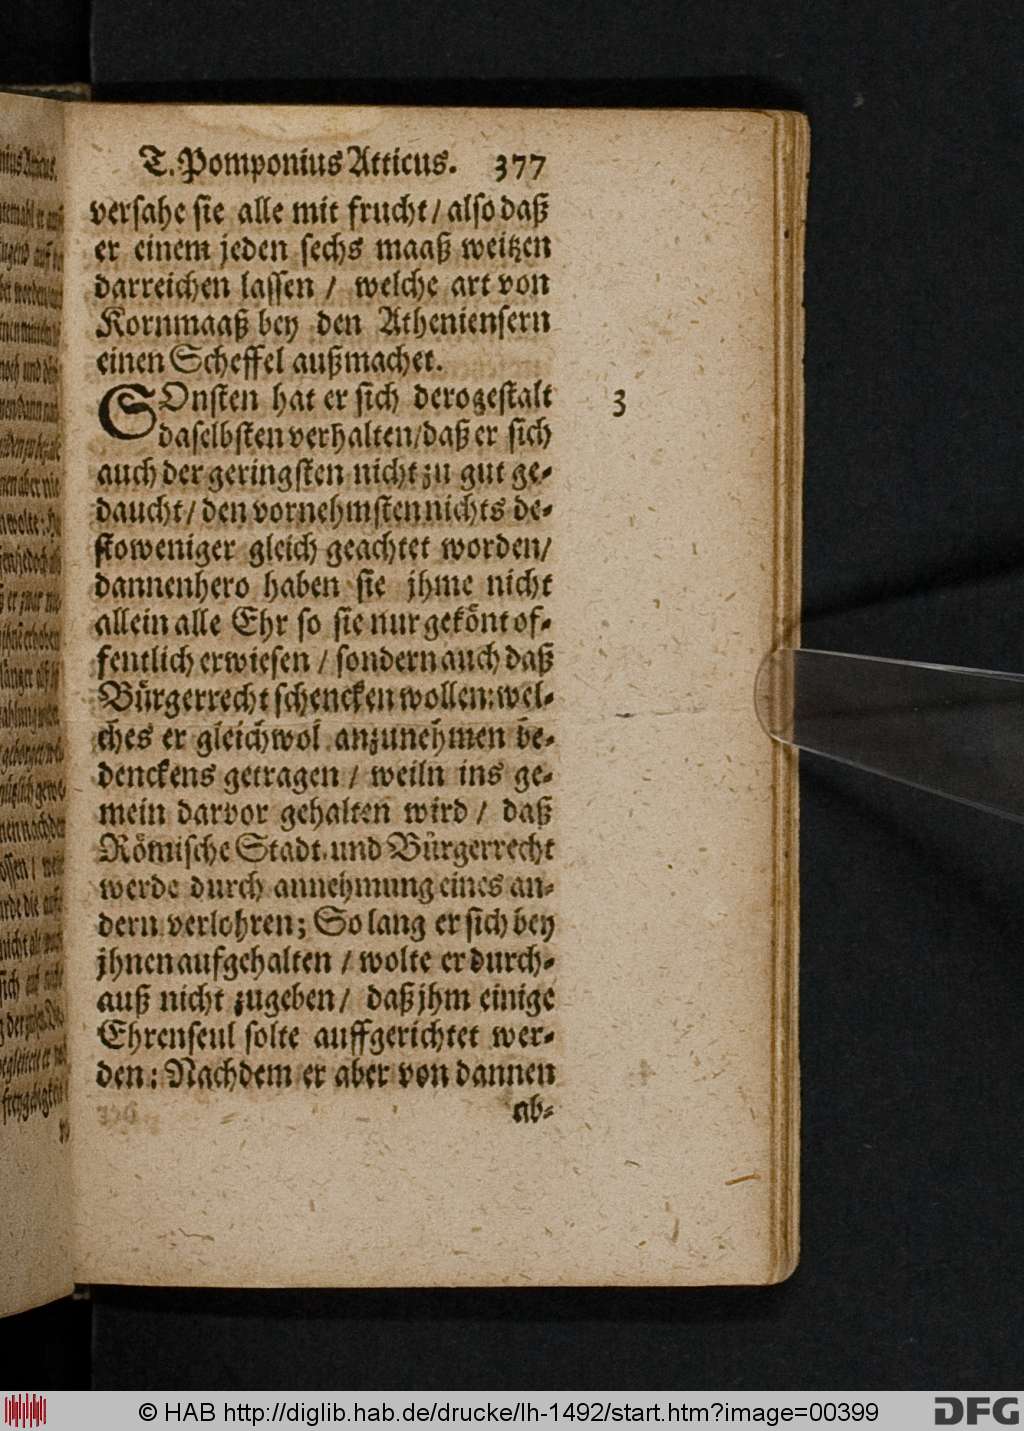 T. Pomponius Atticus. 377
versahe sie alle mit frucht / also daß
er einem jeden sechs maaß weitzen
darreichen lassen / welche art von
Kornmaaß bey den Atheniensern
einen Scheffel außmachet.
SOnsten hat er sich derogestalt 3
daselbsten verhalten / daß er sich
auch der geringsten nicht zu gut ge-
daucht / den vornehmsten nichts de-
stoweniger gleich geachtet worden /
dannenhero haben sie jhme nicht
allein alle Ehr so sie nur gekönt of-
fentlich erwiesen / sondern auch daß
Bürgerrecht schencken wollen: wel-
ches er gleichwol anzunehmen be-
denckens getragen / weiln ins ge-
mein darvor gehalten wird / daß
Römische Stadt und Bürgerrecht
werde durch annehmung eines an-
dern verlohren; So lang er sich bey
jhnen aufgehalten / wolte er durch-
auß nicht zugeben / daß jhm einige
Ehrenseul solte auffgerichtet wer-
den: Nachdem er aber von dannen
ab-
© HAB http://diglib.hab.de/drucke/lh-1492/start.htm?image=00399
DFG